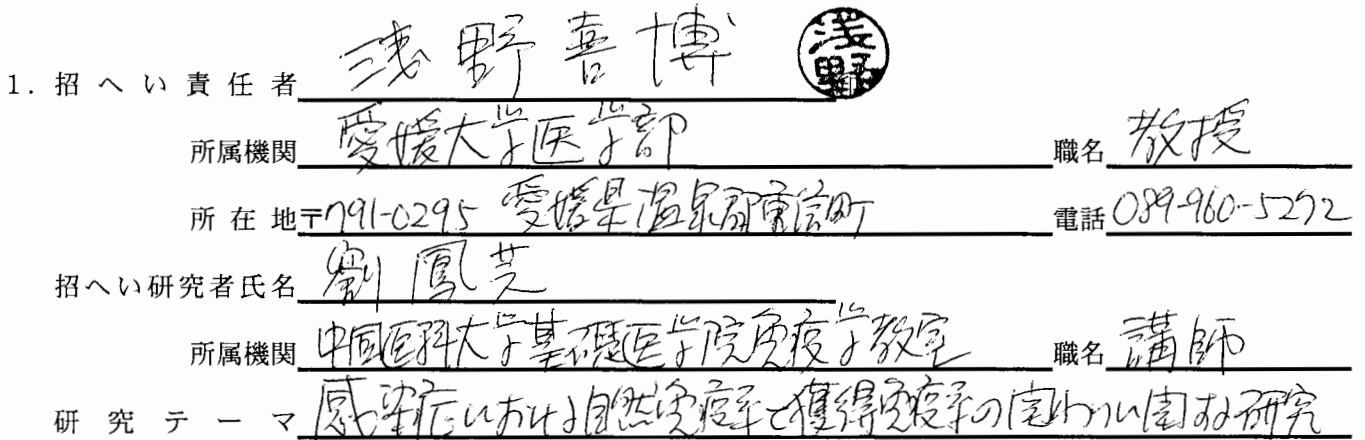 1. 招へい責任者 浅野喜博 浅野
所属機関 愛媛大学医学部 職名 教授
所在地 〒791-0295 愛媛県温泉郡重信町 電話 089-960-5272
招へい研究者氏名 劉鳳芝
所属機関 中国医科大学基礎医学院免疫学教室 職名 講師
研究テーマ 感染症における自然免疫系と獲得免疫系の関わりに関する研究